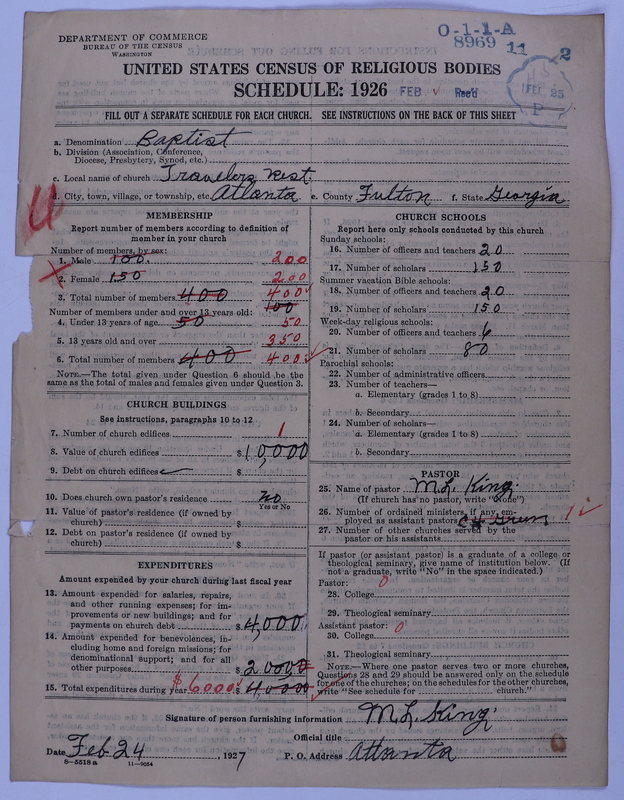 DEPARTMENT OF COMMERCE
BUREAU OF THE CENSUS
WASHINGTON
O-1-1-A
8969 11 2
UNITED STATES CENSUS OF RELIGIOUS BODIES
SCHEDULE: 1926
FEB Rec'd
FEB 25
P
FILL OUT A SEPARATE SCHEDULE FOR EACH CHURCH. SEE INSTRUCTIONS ON THE BACK OF THIS SHEET
a. Denomination Baptist
b. Division (Association, Conference, Diocese, Presbytery, Synod, etc.)
c. Local name of church Travelers rest
d. City, town, village, or township, etc. Atlanta e. County Fulton f. State Georgia
MEMBERSHIP
Report number of members according to definition of
member in your church
Number of members, by sex:
1. Male 100. 200
2. Female 150 200
3. Total number of members 400 400
Number of members under and over 13 years old: 100
4. Under 13 years of age 50 50
5. 13 years old and over 350
6. Total number of members 400 400
NOTE.—The total given under Question 6 should be the
same as the total of males and females given under Question 3.
CHURCH BUILDINGS
See instructions, paragraphs 10 to 12
7. Number of church edifices 1
8. Value of church edifices $10,000
9. Debt on church edifices $
10. Does church own pastor's residence No
Yes or No
11. Value of pastor's residence (if owned by
church) $
12. Debt on pastor's residence (if owned by
church) $
EXPENDITURES
Amount expended by your church during last fiscal year
13. Amount expended for salaries, repairs,
and other running expenses; for im-
provements or new buildings; and for
payments on church debt $4,000
14. Amount expended for benevolences, in-
cluding home and foreign missions; for
denominational support; and for all
other purposes $20000
15. Total expenditures during year $6000 $40000
CHURCH SCHOOLS
Report here only schools conducted by this church
Sunday schools:
16. Number of officers and teachers 20
17. Number of scholars 150
Summer vacation Bible schools:
18. Number of officers and teachers 20
19. Number of scholars 150
Week-day religious schools:
20. Number of officers and teachers 6
21. Number of scholars 80
Parochial schools:
22. Number of administrative officers
23. Number of teachers—
a. Elementary (grades 1 to 8)
b. Secondary
24. Number of scholars—
a. Elementary (grades 1 to 8)
b. Secondary
PASTOR
25. Name of pastor M.L. King.
(If church has no pastor, write "None")
26. Number of ordained ministers, if any, em-
ployed as assistant pastors 1
27. Number of other churches served by the
pastor or his assistants
If pastor (or assistant pastor) is a graduate of a college or
theological seminary, give name of institution below. (If
not a graduate, write "No" in the space indicated.)
Pastor: 0
28. College
29. Theological seminary
Assistant pastor: 0
30. College
31. Theological seminary
NOTE.—Where one pastor serves two or more churches,
Questions 28 and 29 should be answered only on the schedule
for one of the churches; on the schedules for the other churches,
write "See schedule for church."
Signature of person furnishing information M.L. King.
Official title
Date Feb 24, 1927 P. O. Address Atlanta
8-5518 a 11-9054